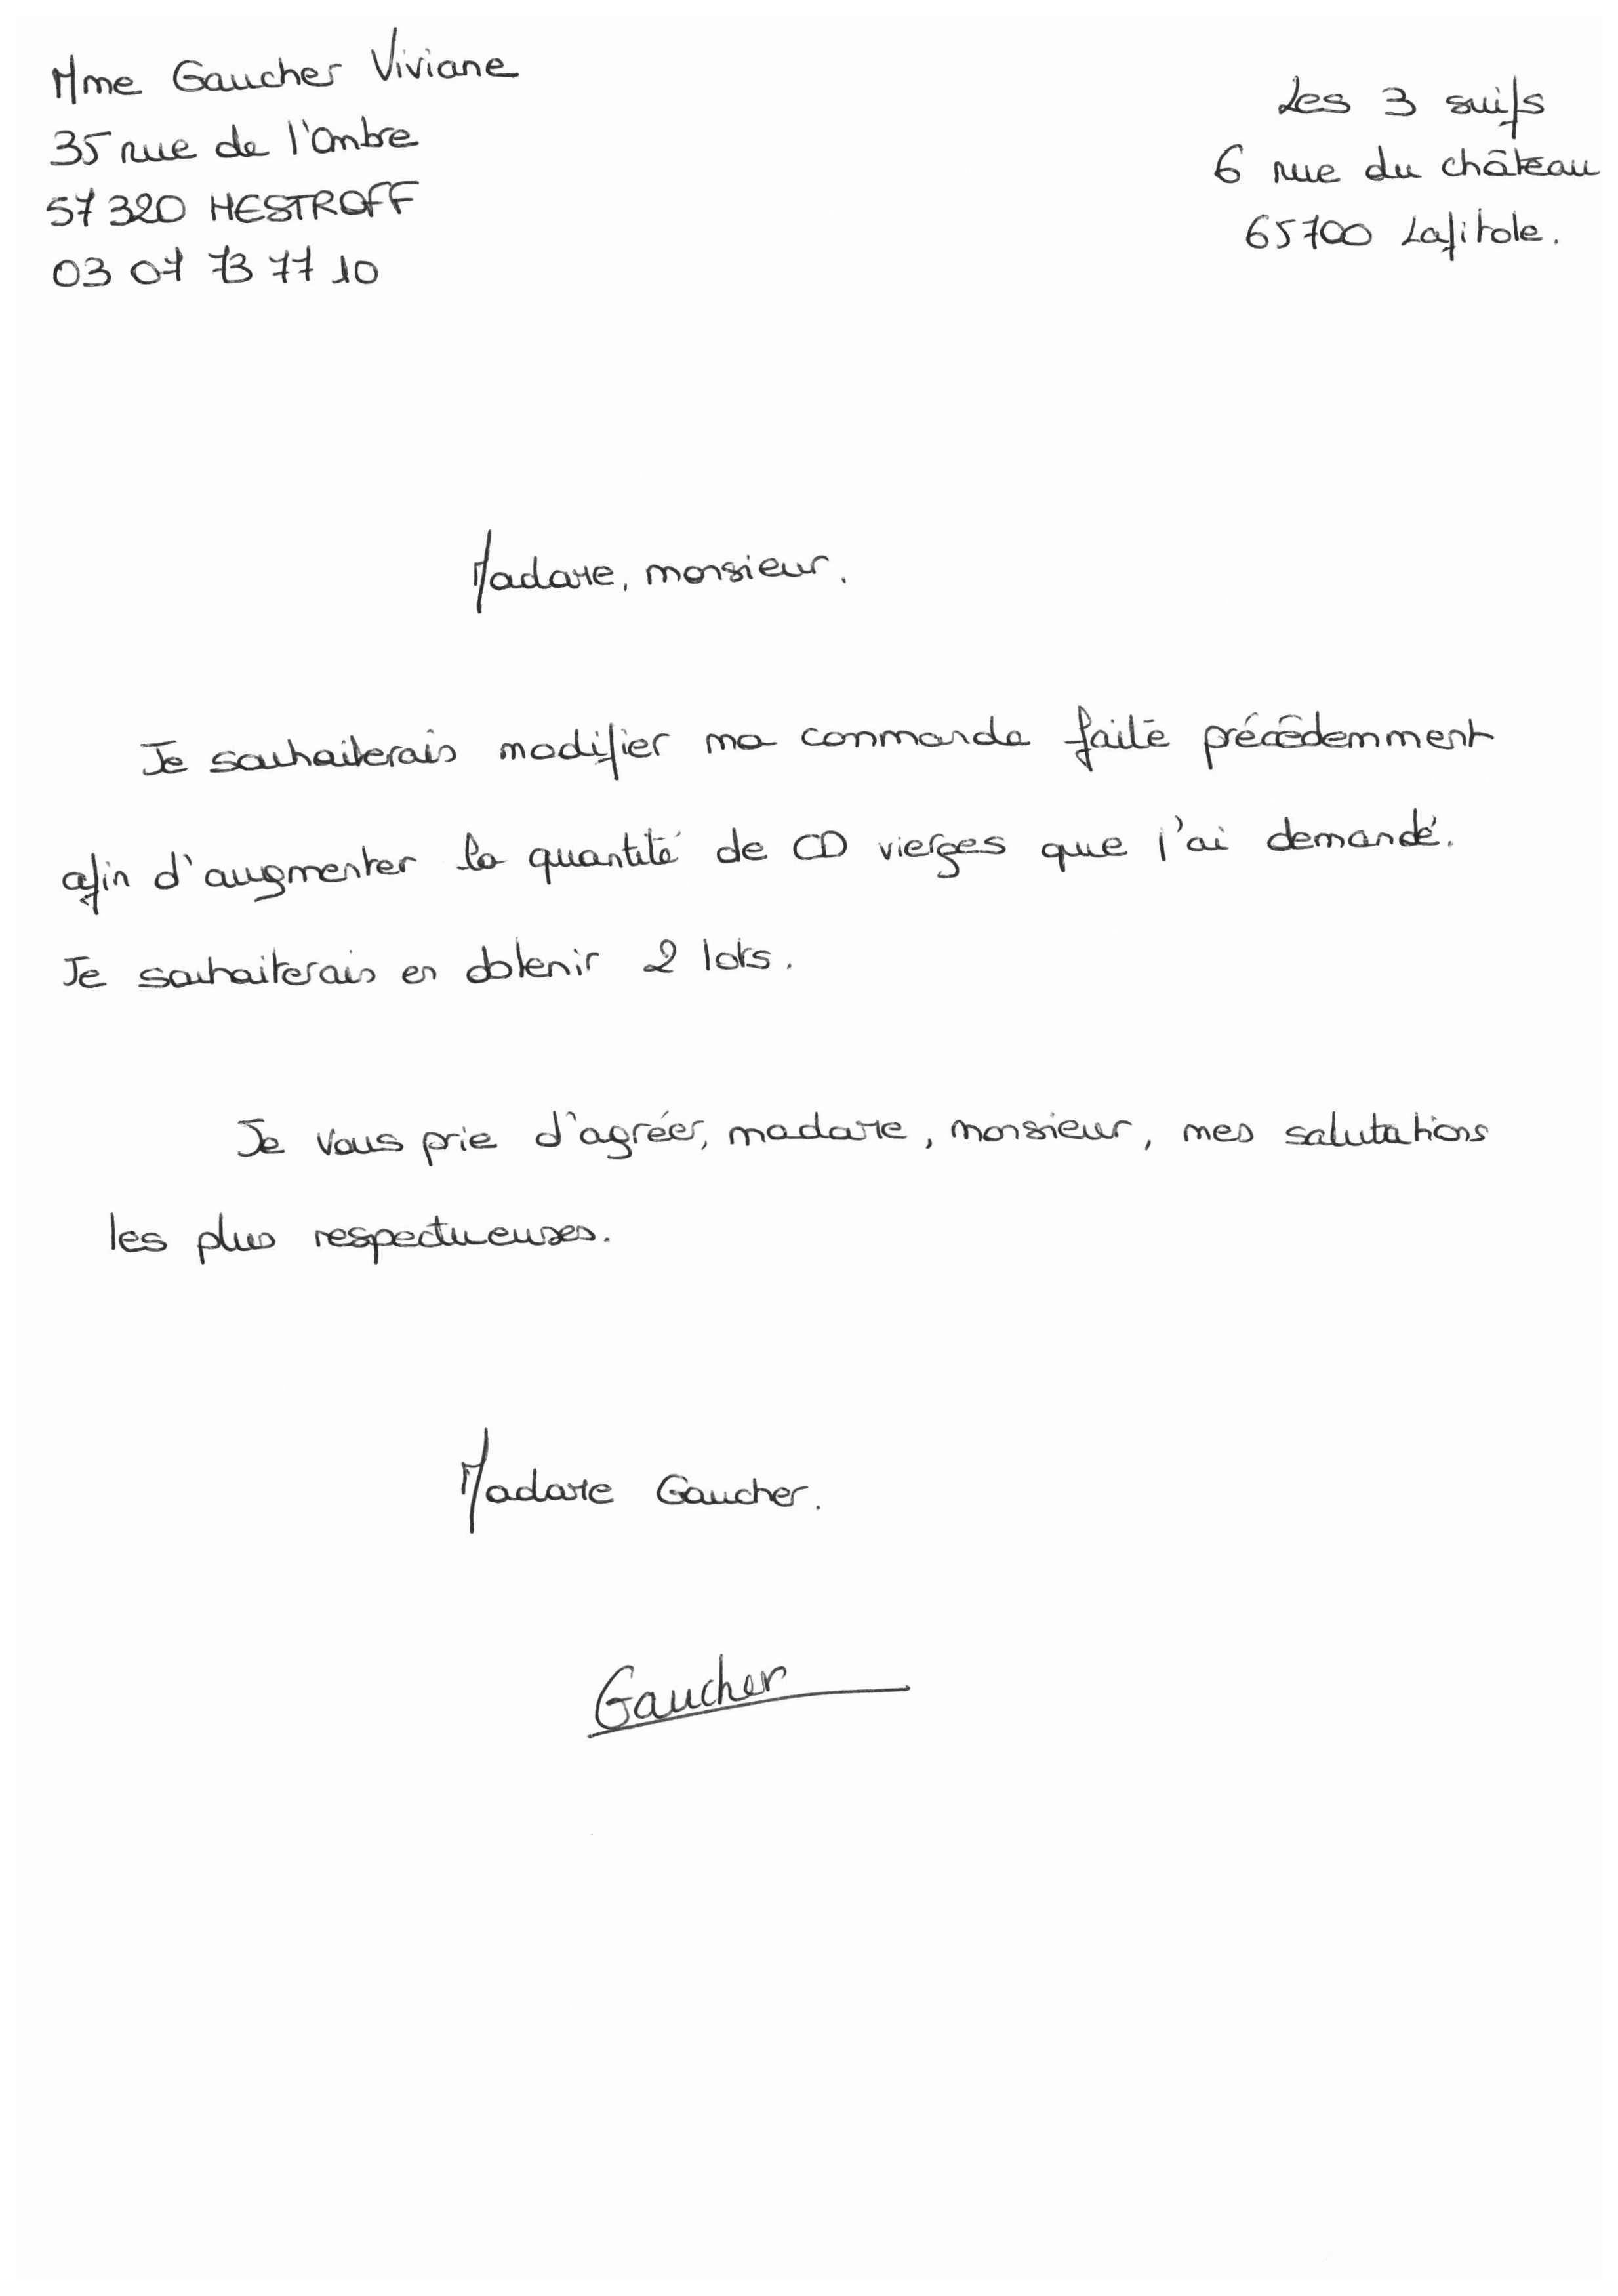 Mme Gaucher Viviane
35 rue de l'Ombre
57320 HESTROFF
03 07 73 77 10
Les 3 suifs
6 rue du château
65700 Lafitole.
Madame, monsieur.
Je souhaiterais modifier ma commande faite précédemment
afin d'augmenter la quantité de CD vierges que j'ai demandé.
Je souhaiterais en obtenir 2 lots.
Je vous prie d'agréer, madame, monsieur, mes salutations
les plus respectueuses.
Madame Gaucher.
Gaucher